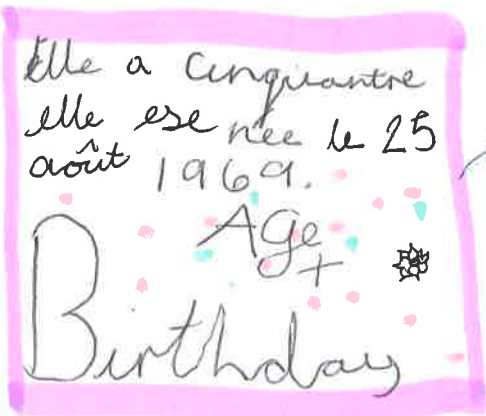 Elle a Cinquantre
elle ese née le 25
août 1969.
Age
+
Birthday